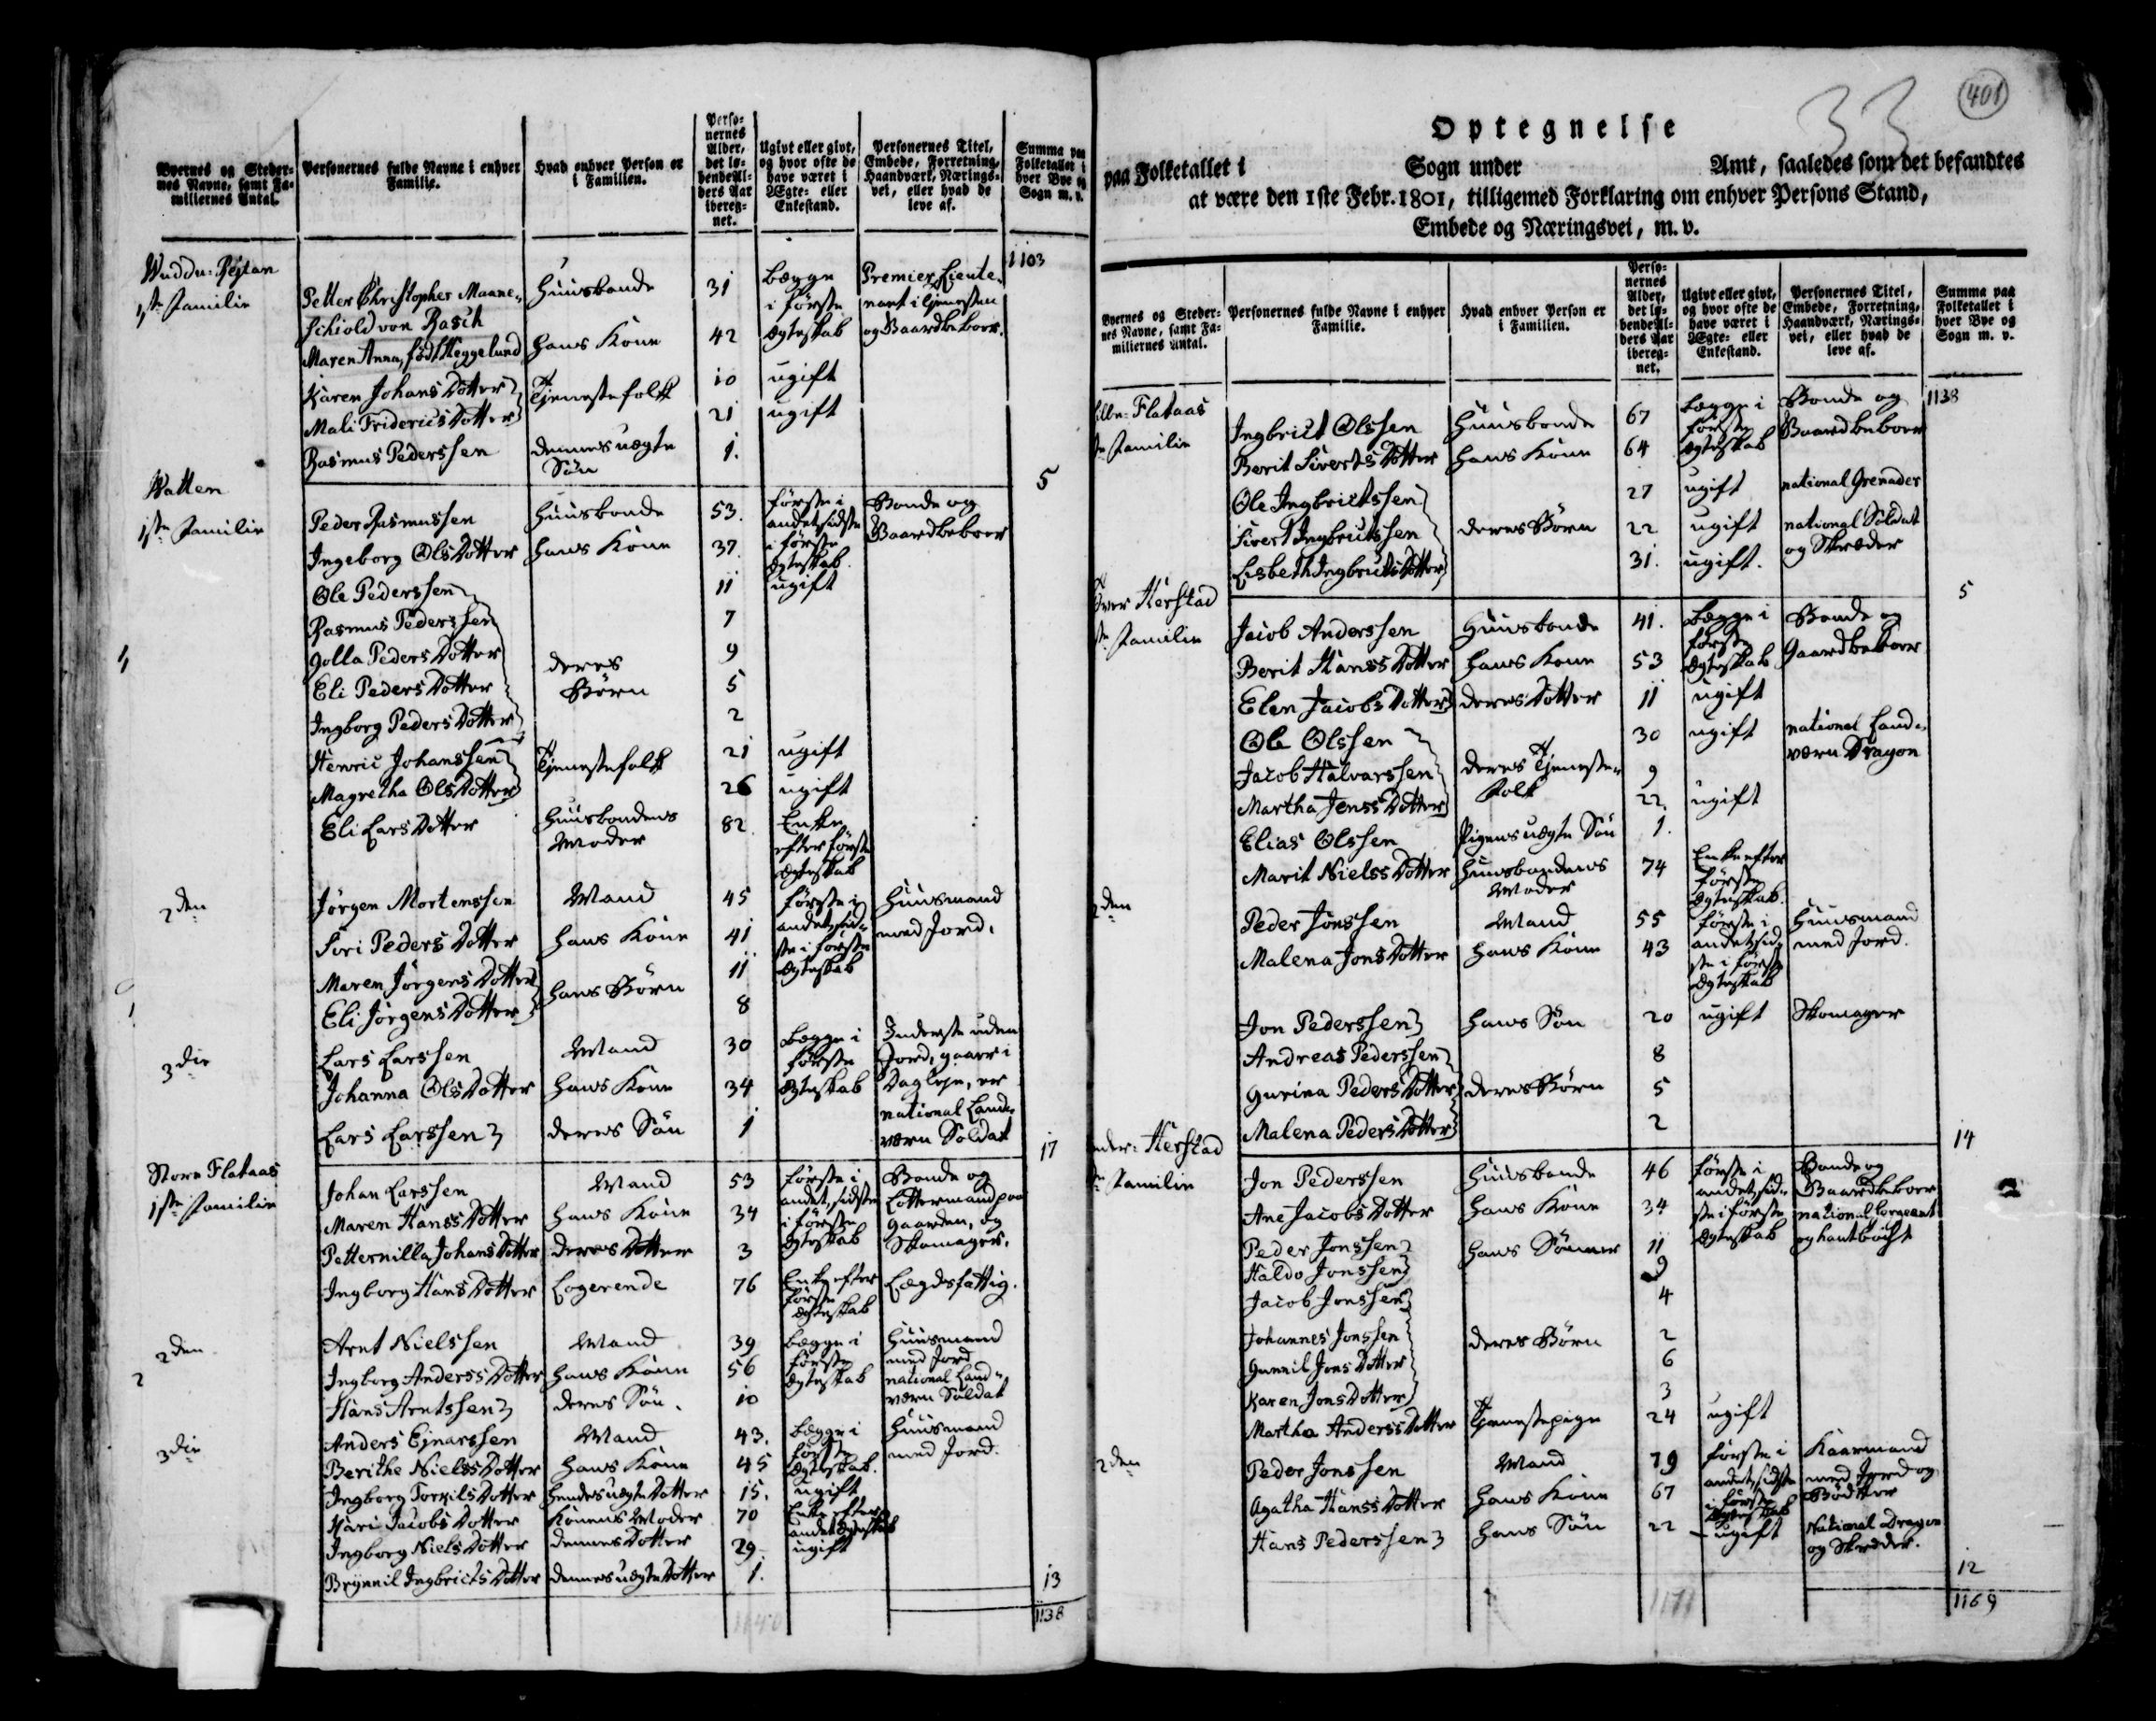 Byernes og Steder-
nes Navne, samt Fa-
miliernes Antal.
Personernes fulde Navne i enhver
Familie.
Hvad enhver Person er
i Familien.
Perso-
nernes
Alder,
det lø-
bende Al-
ders Aar
ibereg-
net.
Ugivt eller givt,
og hvor ofte de
have været i
Ægte- eller
Enkestand.
Personernes Titel,
Embede, Forretning,
Haandværk, Nærings-
vei, eller hvad de
leve af.
Summa paa
Folketallet i
hver Bye og
Sogn m. v.
1103
1ste Familie
Petter Christopher Maane- Huusbonde 31 Begge Premier Lieute-
schiold von Rasch i første nant i tjenesten
Maren Anna, født Heggelund hans Kone 42 Ægteskab og Gaardbeboer.
Karen Johans Dotter Tjenestefolk 10 ugift
Mali Friderics Dotter 21 ugift
Rasmus Pederssen dennes uægte 1.
Søn
5
Watten
1ste Familie
Peder Rasmussen Huusbonde 53. første i Bonde og
andet, sidste Gaardbeboer
Ingeborg Ols Dotter hans Kone 37. i første
Ægteskab.
Ole Pederssen 11 ugift
Rasmus Pederssen 7
Golla Peders Dotter deres 9
Eli Peders Dotter Børn 5
Ingborg Peders Dotter 2
Henric Johanssen Tjenestefolk 21 ugift
Magretha Ols Dotter 26 ugift
Eli Lars Dotter Huusbondens 82. Enke
Moder efter første
Ægteskab
2den
Jørgen Mortenssen Mand 45 første i Huusmand
Sori Peders Dotter hans Kone 41 andet, sid- med Jord.
ste i første
Maren Jørgens Dotter hans Børn 11 Ægteskab
Eli Jørgens Dotter 8
3die
Lars Larssen Mand 30 Begge i Inderste uden
første Jord, gaaer i
Johanna Ols Dotter hans Kone 34 Ægteskab Dagleje, er
national Land-
Lars Larssen deres Søn 1 værn Soldat
17
Store Flataas
1ste Familie
Johan Larssen Mand 53 første i Bonde og
Maren Hanss Dotter hans Kone 34 andet, sidste Lottermand paa
i første Gaarden, og
Petternilla Johans Dotter deres Dotter 3 Ægteskab Skomager.
Ingborg Hans Dotter Logerende 76 Enke efter Lægdsfattig.
første
Ægteskab
2den
Arnt Nielssen Mand 39 Begge i Huusmand
Ingborg Anderss Dotter hans Kone 56 første med Jord
Ægteskab national Land-
Hans Arntssen deres Søn. 10 værn Soldat
3die
Anders Ejnarssen Mand 43. Begge i Huusmand
Berithe Nielss Dotter hans Kone 45 første med Jord.
Ægteskab.
Ingborg Torkils Dotter hendes uægte Dotter 15. ugift
Kari Jacobs Dotter Konens Moder 70 Enke efter
andet Ægteskab
Ingborg Niels Dotter dennes Dotter 29 ugift
Brynnil Ingbricts Dotter dennes uægte Dotter 1.
13
1138
33
401
Optegnelse
paa Folketallet i Sogn under Amt, saaledes som det befandtes
at være den 1ste Febr. 1801, tilligemed Forklaring om enhver Persons Stand,
Embede og Næringsvei, m. v.
Byernes og Steder-
nes Navne, samt Fa-
miliernes Antal.
Personernes fulde Navne i enhver
Familie.
Hvad enhver Person er
i Familien.
Perso-
nernes
Alder,
det lø-
bende Al-
ders Aar
ibereg-
net.
Ugivt eller givt,
og hvor ofte de
have været i
Ægte- eller
Enkestand.
Personernes Titel,
Embede, Forretning,
Haandværk, Nærings-
vei, eller hvad de
leve af.
Summa paa
Folketallet i
hver Bye og
Sogn m. v.
1138
Lille-Flataas
Familie
Ingbrict Olssen Huusbonde 67 Begge i Bonde og
første Gaardbeboer
Berit Siverts Dotter hans Kone 64 Ægteskab
Ole Ingbrictssen 27 ugift national Grenader
Sivert Ingbrictssen deres Børn 22 ugift national Soldat
Lisbeth Ingbricts Dotter 31. ugift. og Skræder
5
Over Herstad
Familie
Jacob Anderssen Huusbonde 41. Begge i Bonde og
første Gaardbeboer
Berit Hanss Dotter hans Kone 53 Ægteskab
Elen Jacobs Dotter deres Dotter 11 ugift
Ole Olssen 30 ugift national Land-
Jacob Halvarssen deres Tjeneste 9 værn Dragon
Martha Jenss Dotter Folk 22. ugift
Elias Olssen Pigens uægte Søn 1.
Marit Nielss Dotter Huusbondens 74 Enke efter
Moder første
Ægteskab.
2den
Peder Jonssen Mand 55 første i Huusmand
Malena Jons Dotter hans Kone 43 andet, sid- med Jord.
ste i første
Ægteskab
Jon Pederssen hans Søn 20 ugift Skomager
Andreas Pederssen 8
Gurina Peders Dotter deres Børn 5
Malena Peders Dotter 2
14
Neder-Herstad
Familie
Jon Pederssen Huusbonde 46 første i Bonde og
andet, sid- Gaardbeboer
Ane Jacobs Dotter hans Kone 34 ste i første national Sergeant
Peder Jonssen hans Sønner 11 Ægteskab og hautboist
Haldo Jonssen 9
Jacob Jonssen 4
Johannes Jonssen deres Børn 2
Gunnil Jons Dotter 6
Karen Jons Dotter 3
Martha Anderss Dotter Tjenestepige 24 ugift
2den
Peder Jonssen Mand 79 første i Kaarmand
andet, sidste med Jord og
Agatha Hanss Dotter hans Kone 67 i første Bødker
Ægteskab
Hans Pederssen hans Søn 22 ugift National Dragon
og Skrædder.
12
1171
1169